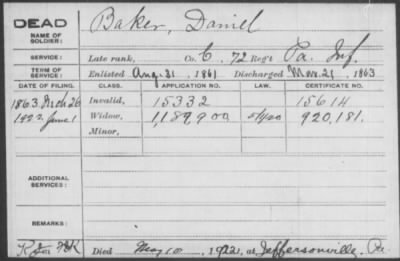 DEAD Baker, Daniel
NAME OF SOLDIER:
SERVICE: Late rank, Co. C, 72 Reg't Pa. Inf.
TERM OF SERVICE: Enlisted Aug. 31, 1861 Discharged Mar. 21, 1863
DATE OF FILING. CLASS. APPLICATION NO. LAW. CERTIFICATE NO.
1863 Mch 26 Invalid, 15332 15614
1922 June 1 Widow, 1,189,900 920,181.
Minor,
ADDITIONAL SERVICES:
REMARKS:
Died May 10, 1922, at Jeffersonville, Pa.